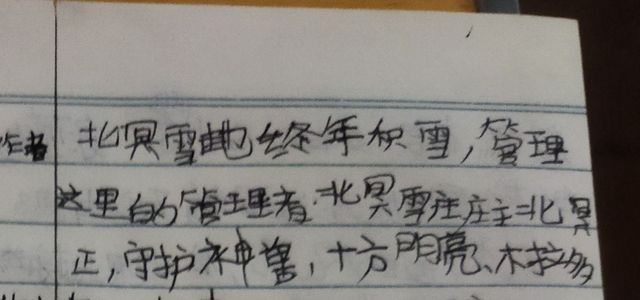 北冥雪地终年积雪,管理
这里的管理者.北冥雪庄庄主北冥
正,守护神兽,十方明亮、木拉多